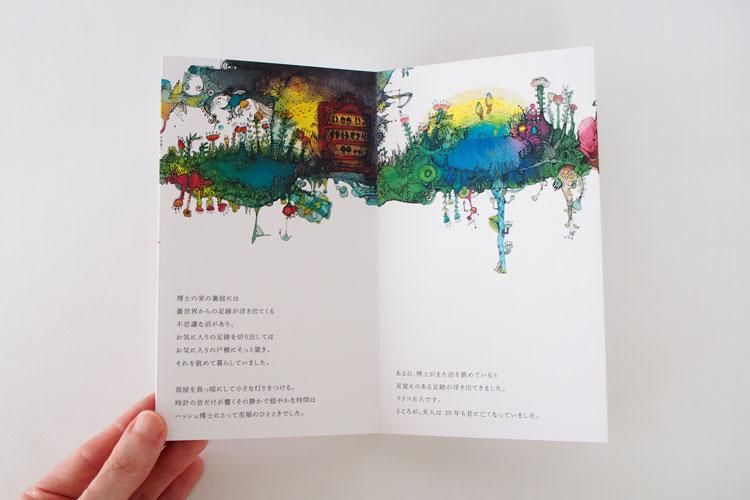 博士の家の裏庭には
裏世界からの足跡が浮き出てくる
不思議な沼があり、
お気に入りの足跡を切り出しては
お気に入りの戸棚にそっと置き、
それを眺めて暮らしていました。
部屋を真っ暗にして小さな灯りをつける。
時計の音だけが響くその静かで穏やかな時間は
ハッシュ博士にとって至福のひとときでした。
ある日、博士がまた沼を眺めていると
見覚えのある足跡が浮き出てきました。
フリコ夫人です。
ところが、夫人は 30 年も昔に亡くなっていました。